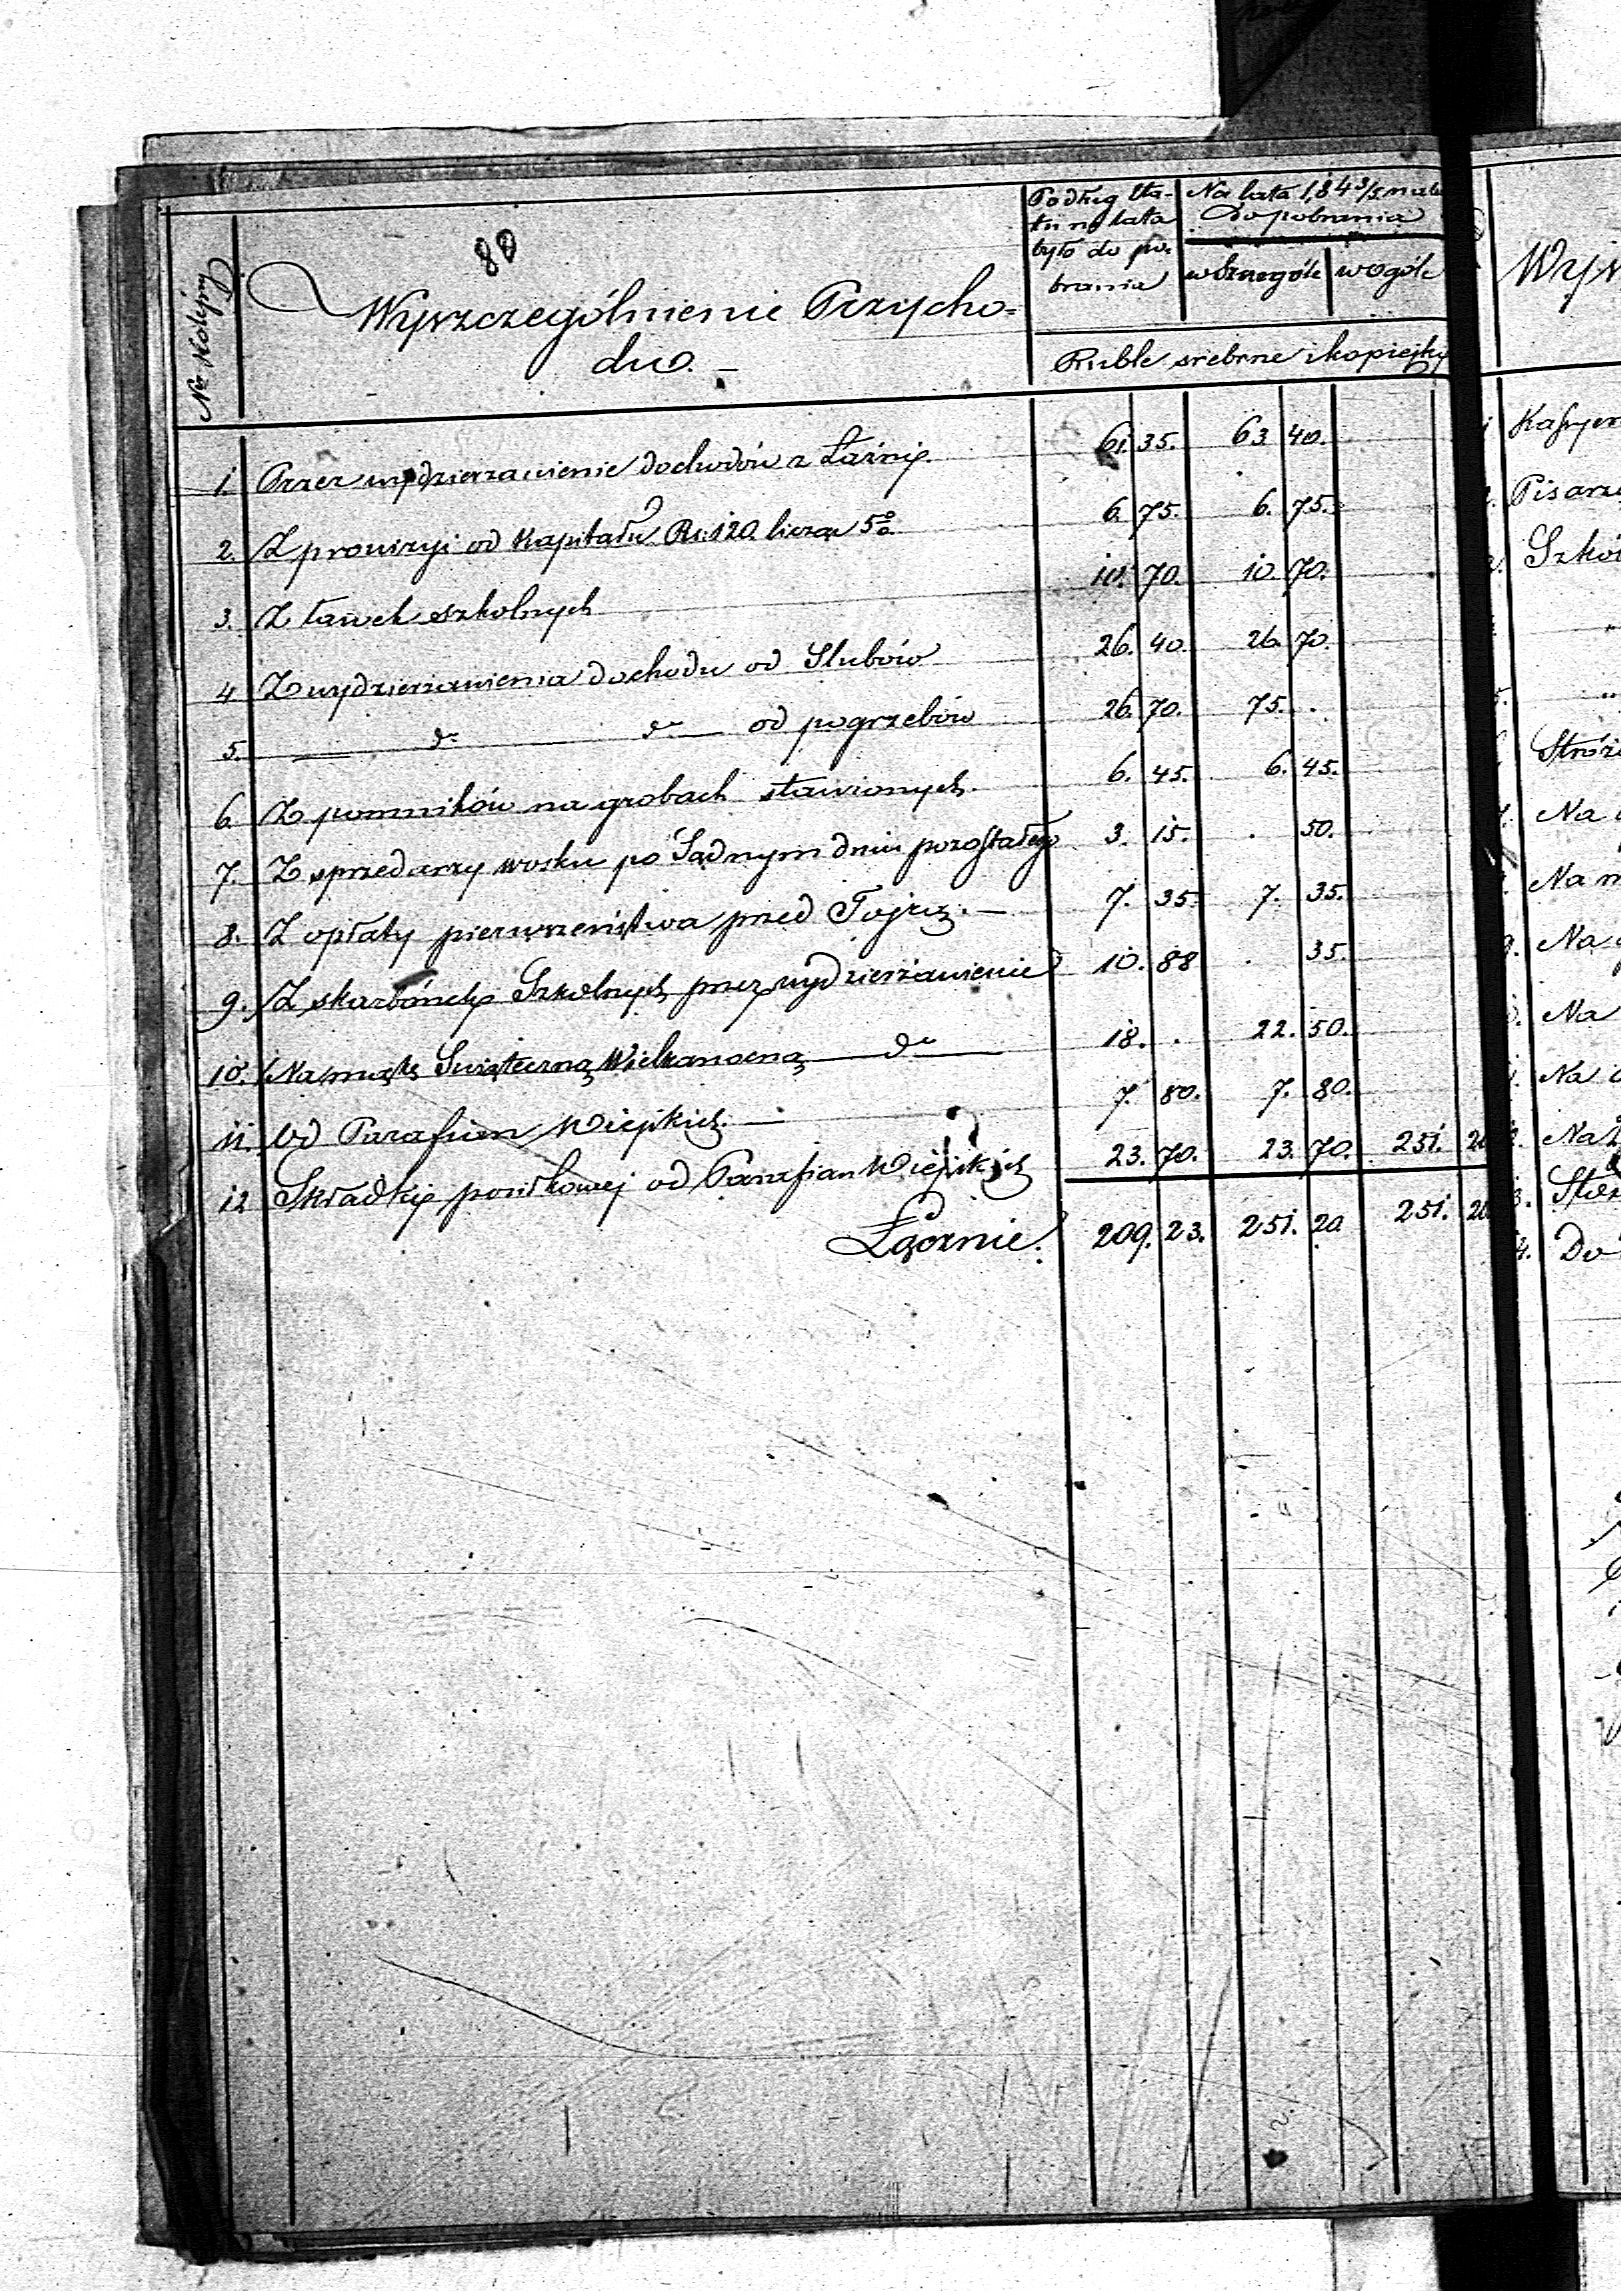 80
Nro Kolejny
Wyszczególnienie Przycho=
du. —
Podług Eta-
tu na lata
było do po-
brania
Na lata 1843/5 ma być
do pobrania
w szczególe
wogóle
Ruble srebrne i kopiejki
1. Przez wydzierzawienie dochodów z Łaźni 61. 35. 63 40.
2. Z prowizyi od Kapitału Rs. 120 licząc 5% 6. 75. 6. 75.
3. Z ławek szkolnych 10. 70. 10. 70.
4. Z wydzierzawienia dochodu od Slubów 26. 40. 26. 70.
5. — do do — od pogrzebów 26. 70. 75. .
6. Z pomników na grobach stawionych. 6. 45. 6. 45.
7. Z sprzedarzy wosku po Sądnym dniu pozostałego 3. 15. . 50.
8. Z opłaty pierwszeństwa przed Torą. — 7. 35. 7. 35.
9. Z skarbónek Szkolnych przez wydzierzawienie 10. 88 . 35.
10. Na mąkę Swiąteczną Wielkanocną — do — 18. . 22. 50.
11. Od Parafian Wiejskich. — 7. 80. 7. 80.
12 Składki posiłkowej od Parafian Wiejskich 23. 70. 23. 70. 251. 20
Łącznie. 209. 23. 251. 20 251. 20
Pisarz
Na
Na
Na
Na
Na
Do